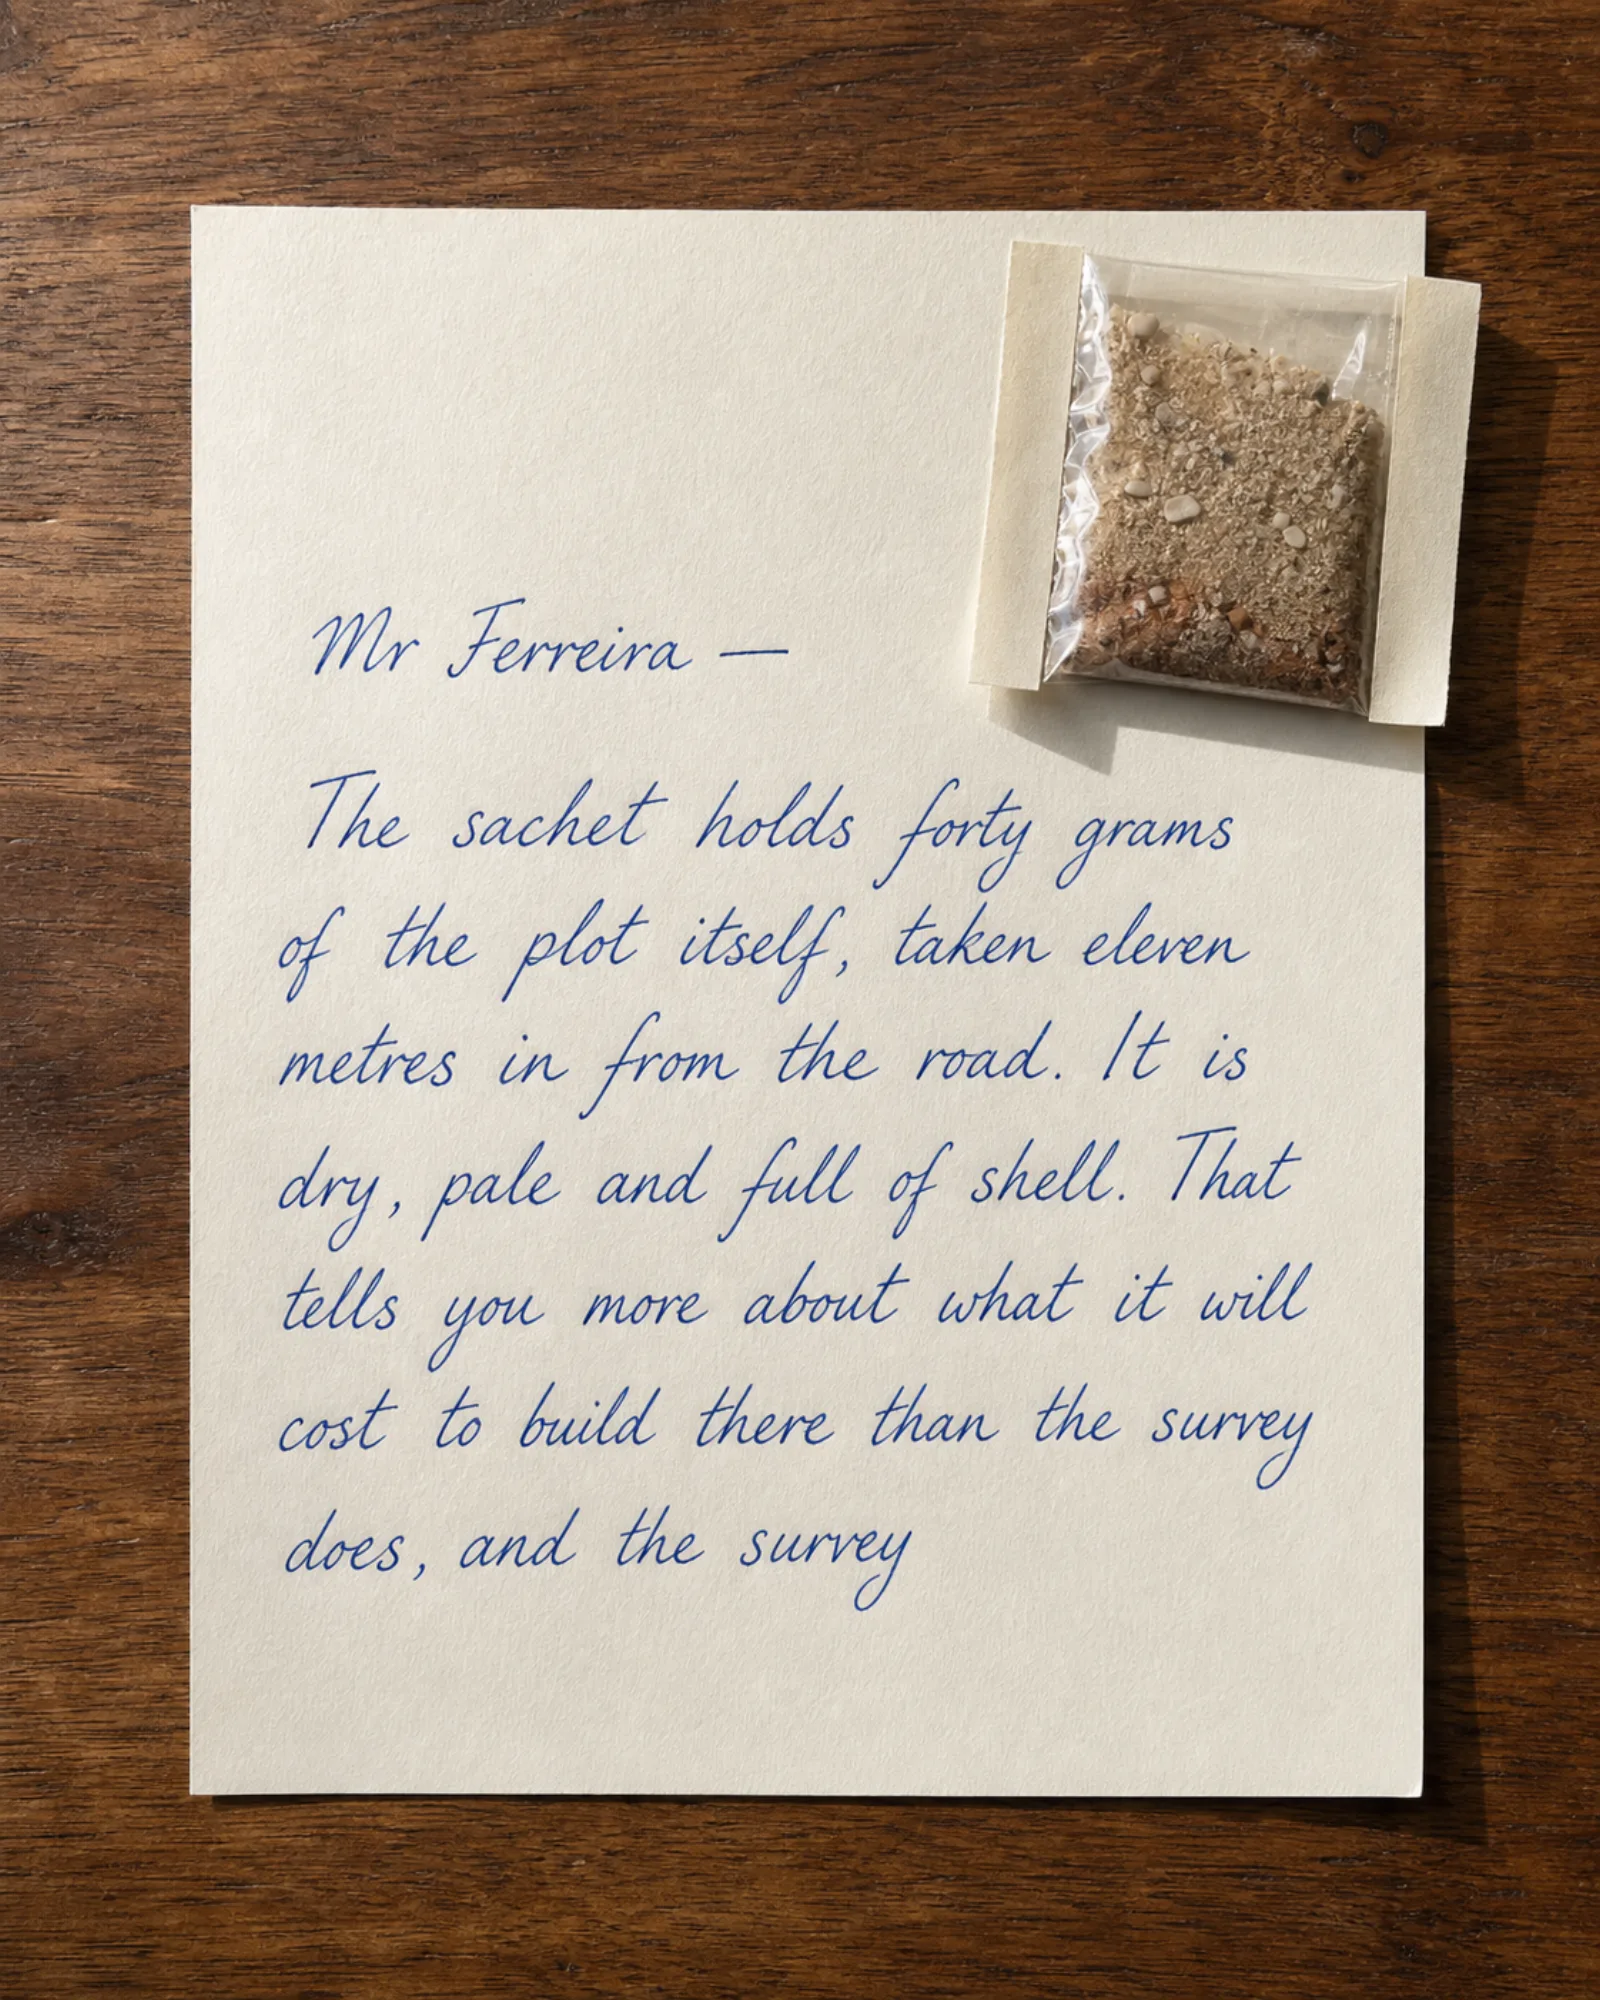 Mr Ferreira —
The sachet holds forty grams
of the plot itself, taken eleven
metres in from the road. It is
dry, pale and full of shell. That
tells you more about what it will
cost to build there than the survey
does, and the survey